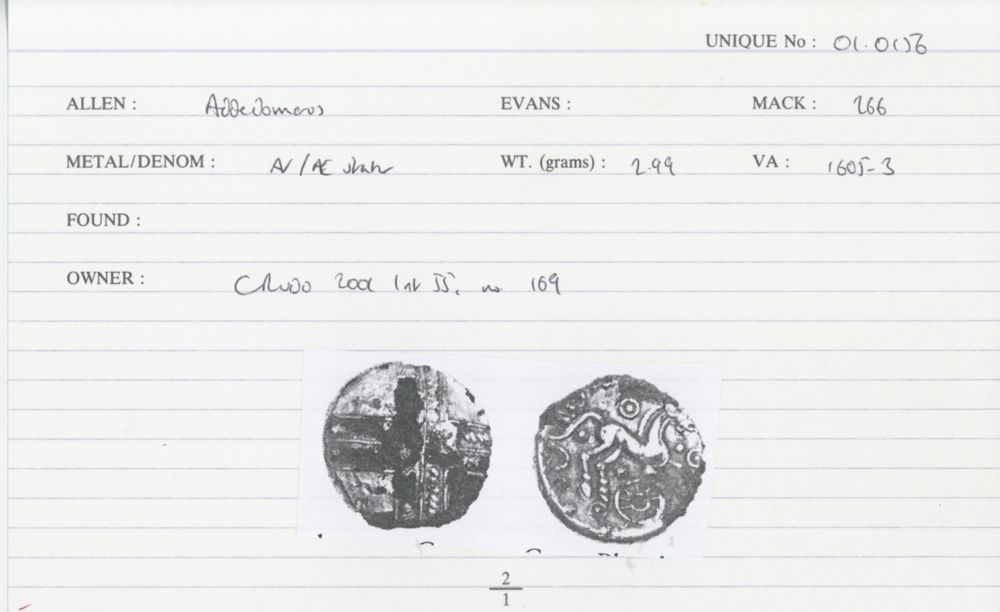 UNIQUE No : 01.0156
ALLEN : Addedomaros EVANS : MACK : 266
METAL/DENOM : AV/AE stater WT. (grams) : 2.99 VA : 1605-3
FOUND :
OWNER : 2001 no. 169
2
1